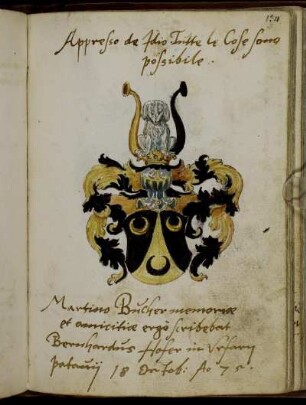 Appresso de Idio Tutte le Cose sono
possibile.
Martino Bucher memoriæ
et amicitiæ ergò scribebat
Bernhardus Hofer in
patavij 18 Octob: Ao 75.